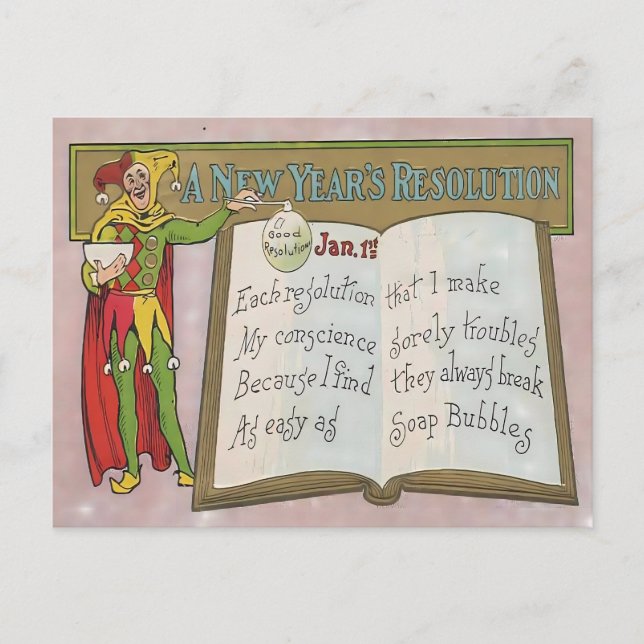 A NEW YEAR'S RESOLUTION
A Good
Resolution
Jan. 1st
Each resolution that I make
My conscience sorely troubles
Because I find they always break
As easy as Soap Bubbles